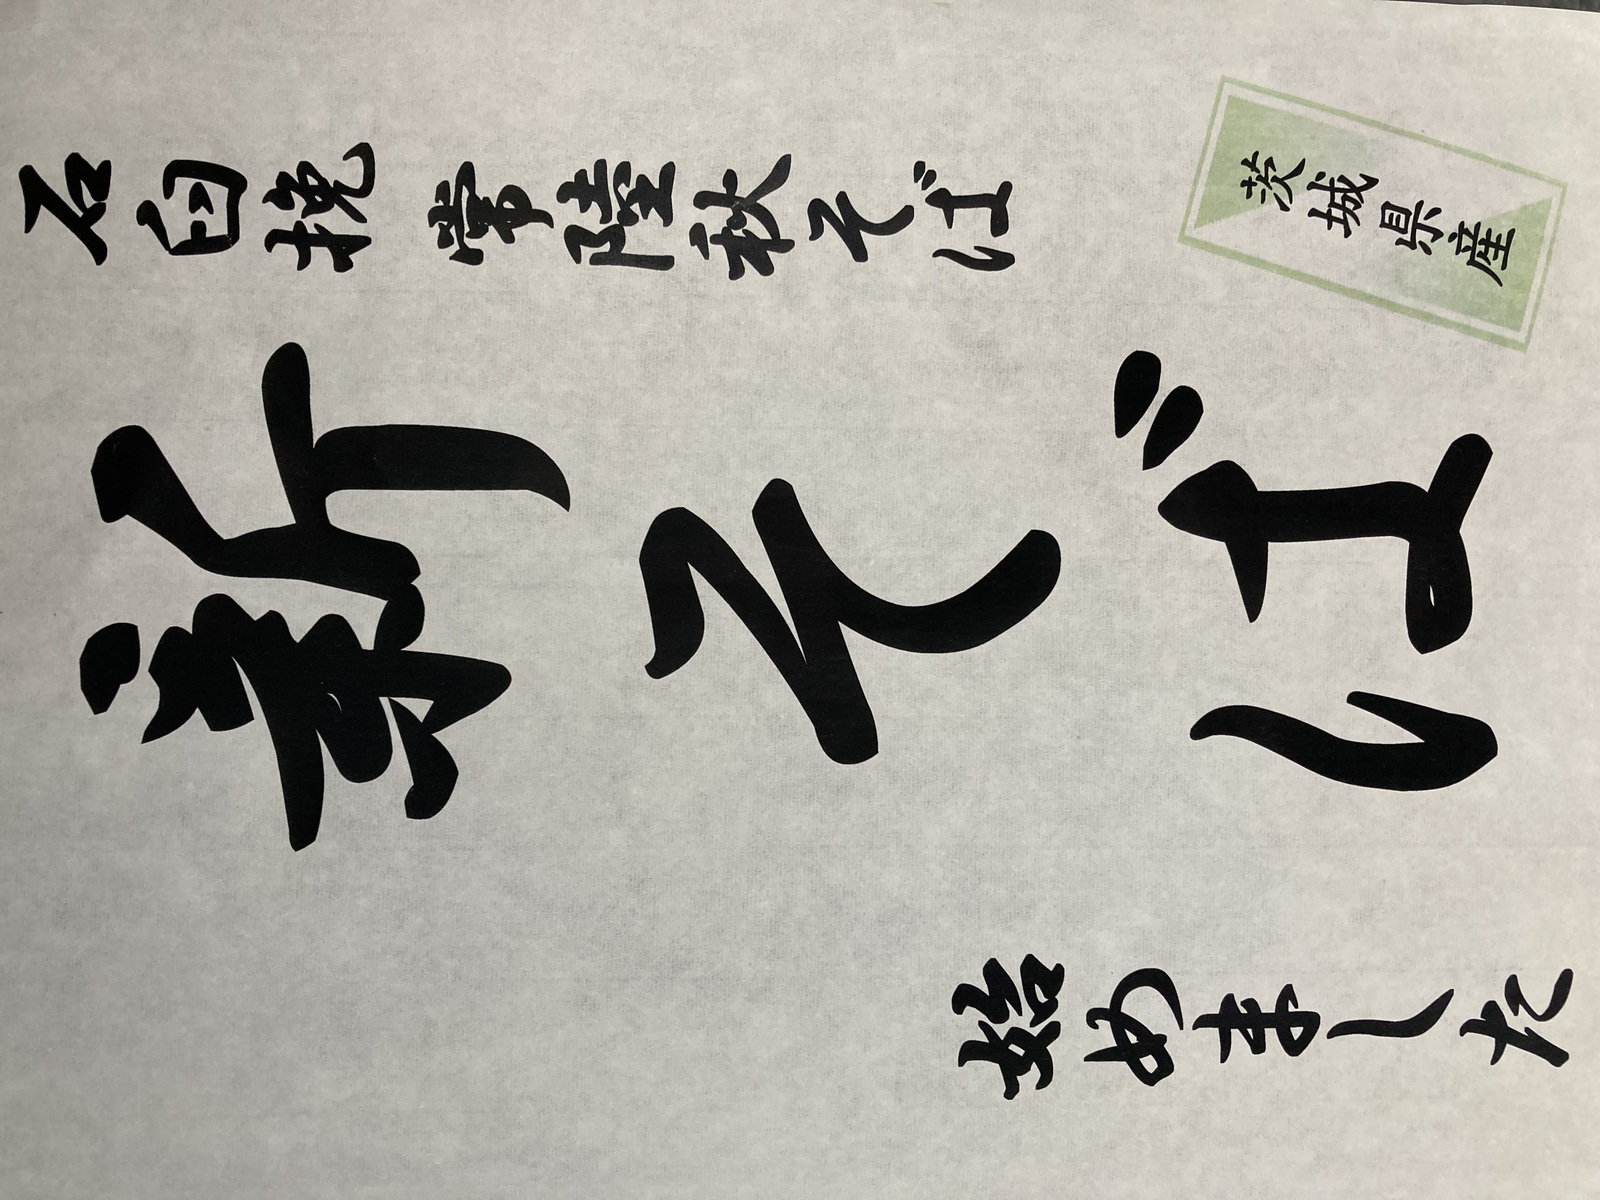 石臼挽 常陸秋そば
新そば
始めました
茨城県産